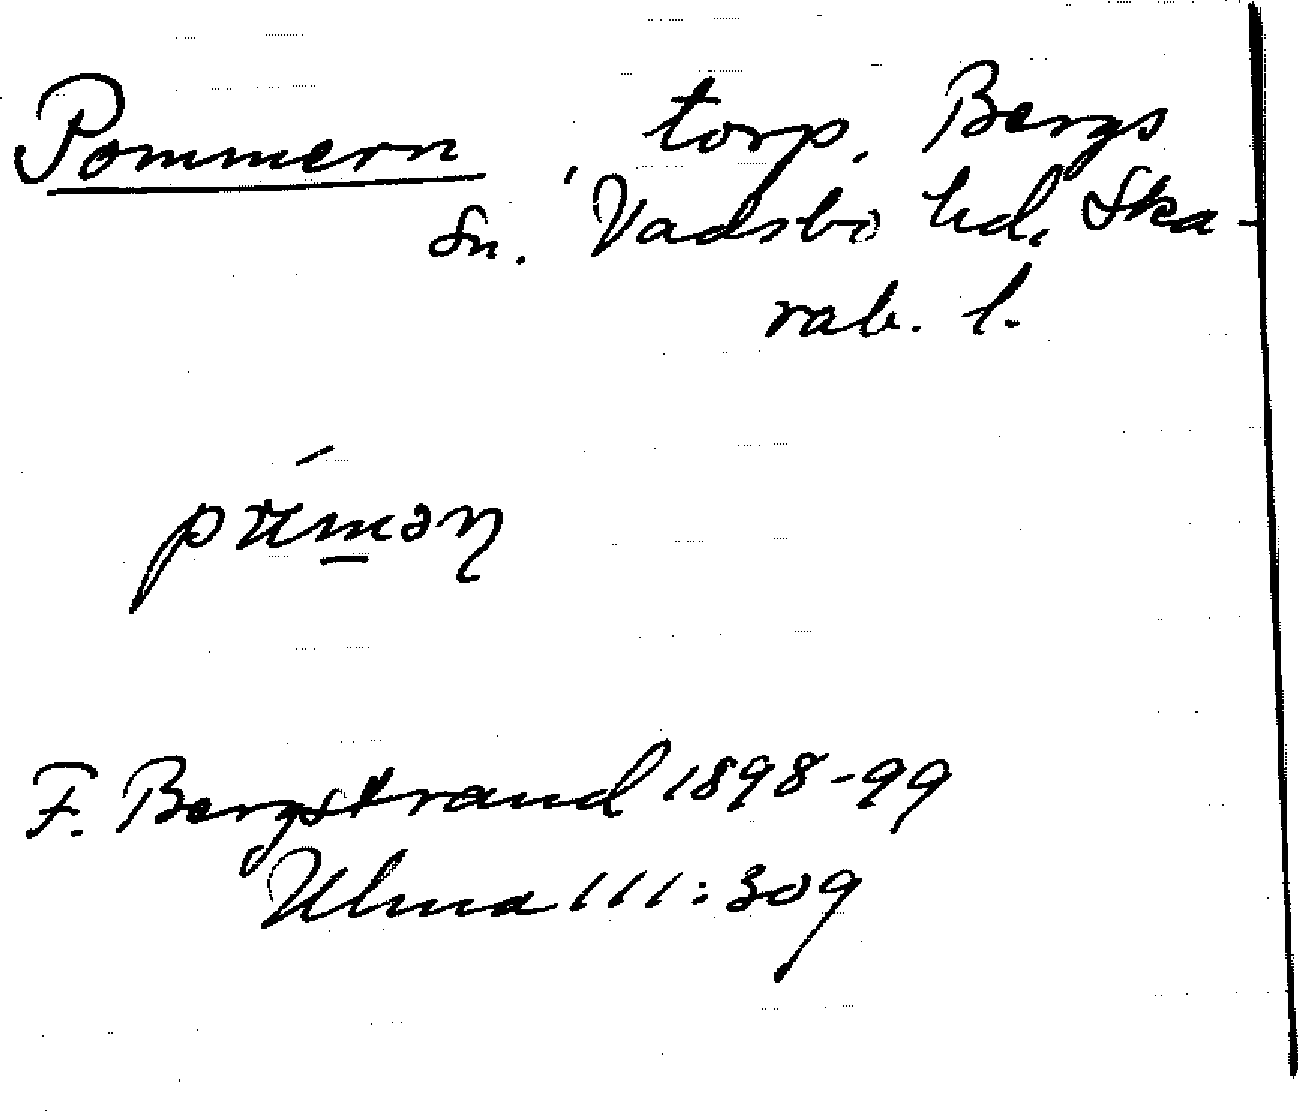 Pommern, torp. Bergs
sn. Vadsbo hd. Ska-
rab. l.
F. Bergstrand 1898-99
Ulma 111:309